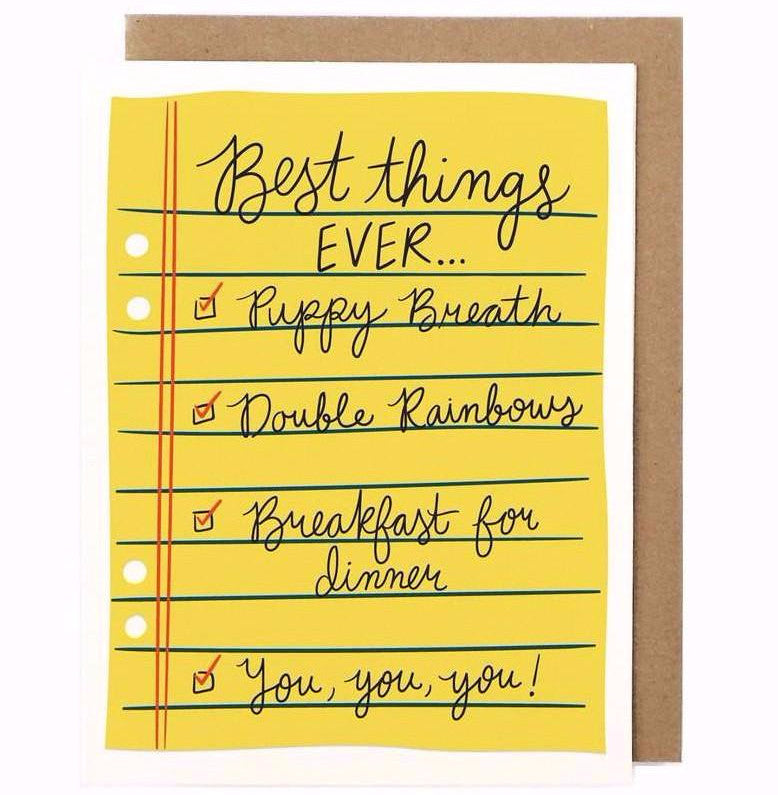 Best things
EVER...
Puppy Breath
Double Rainbows
Breakfast for
dinner
You, you, you!